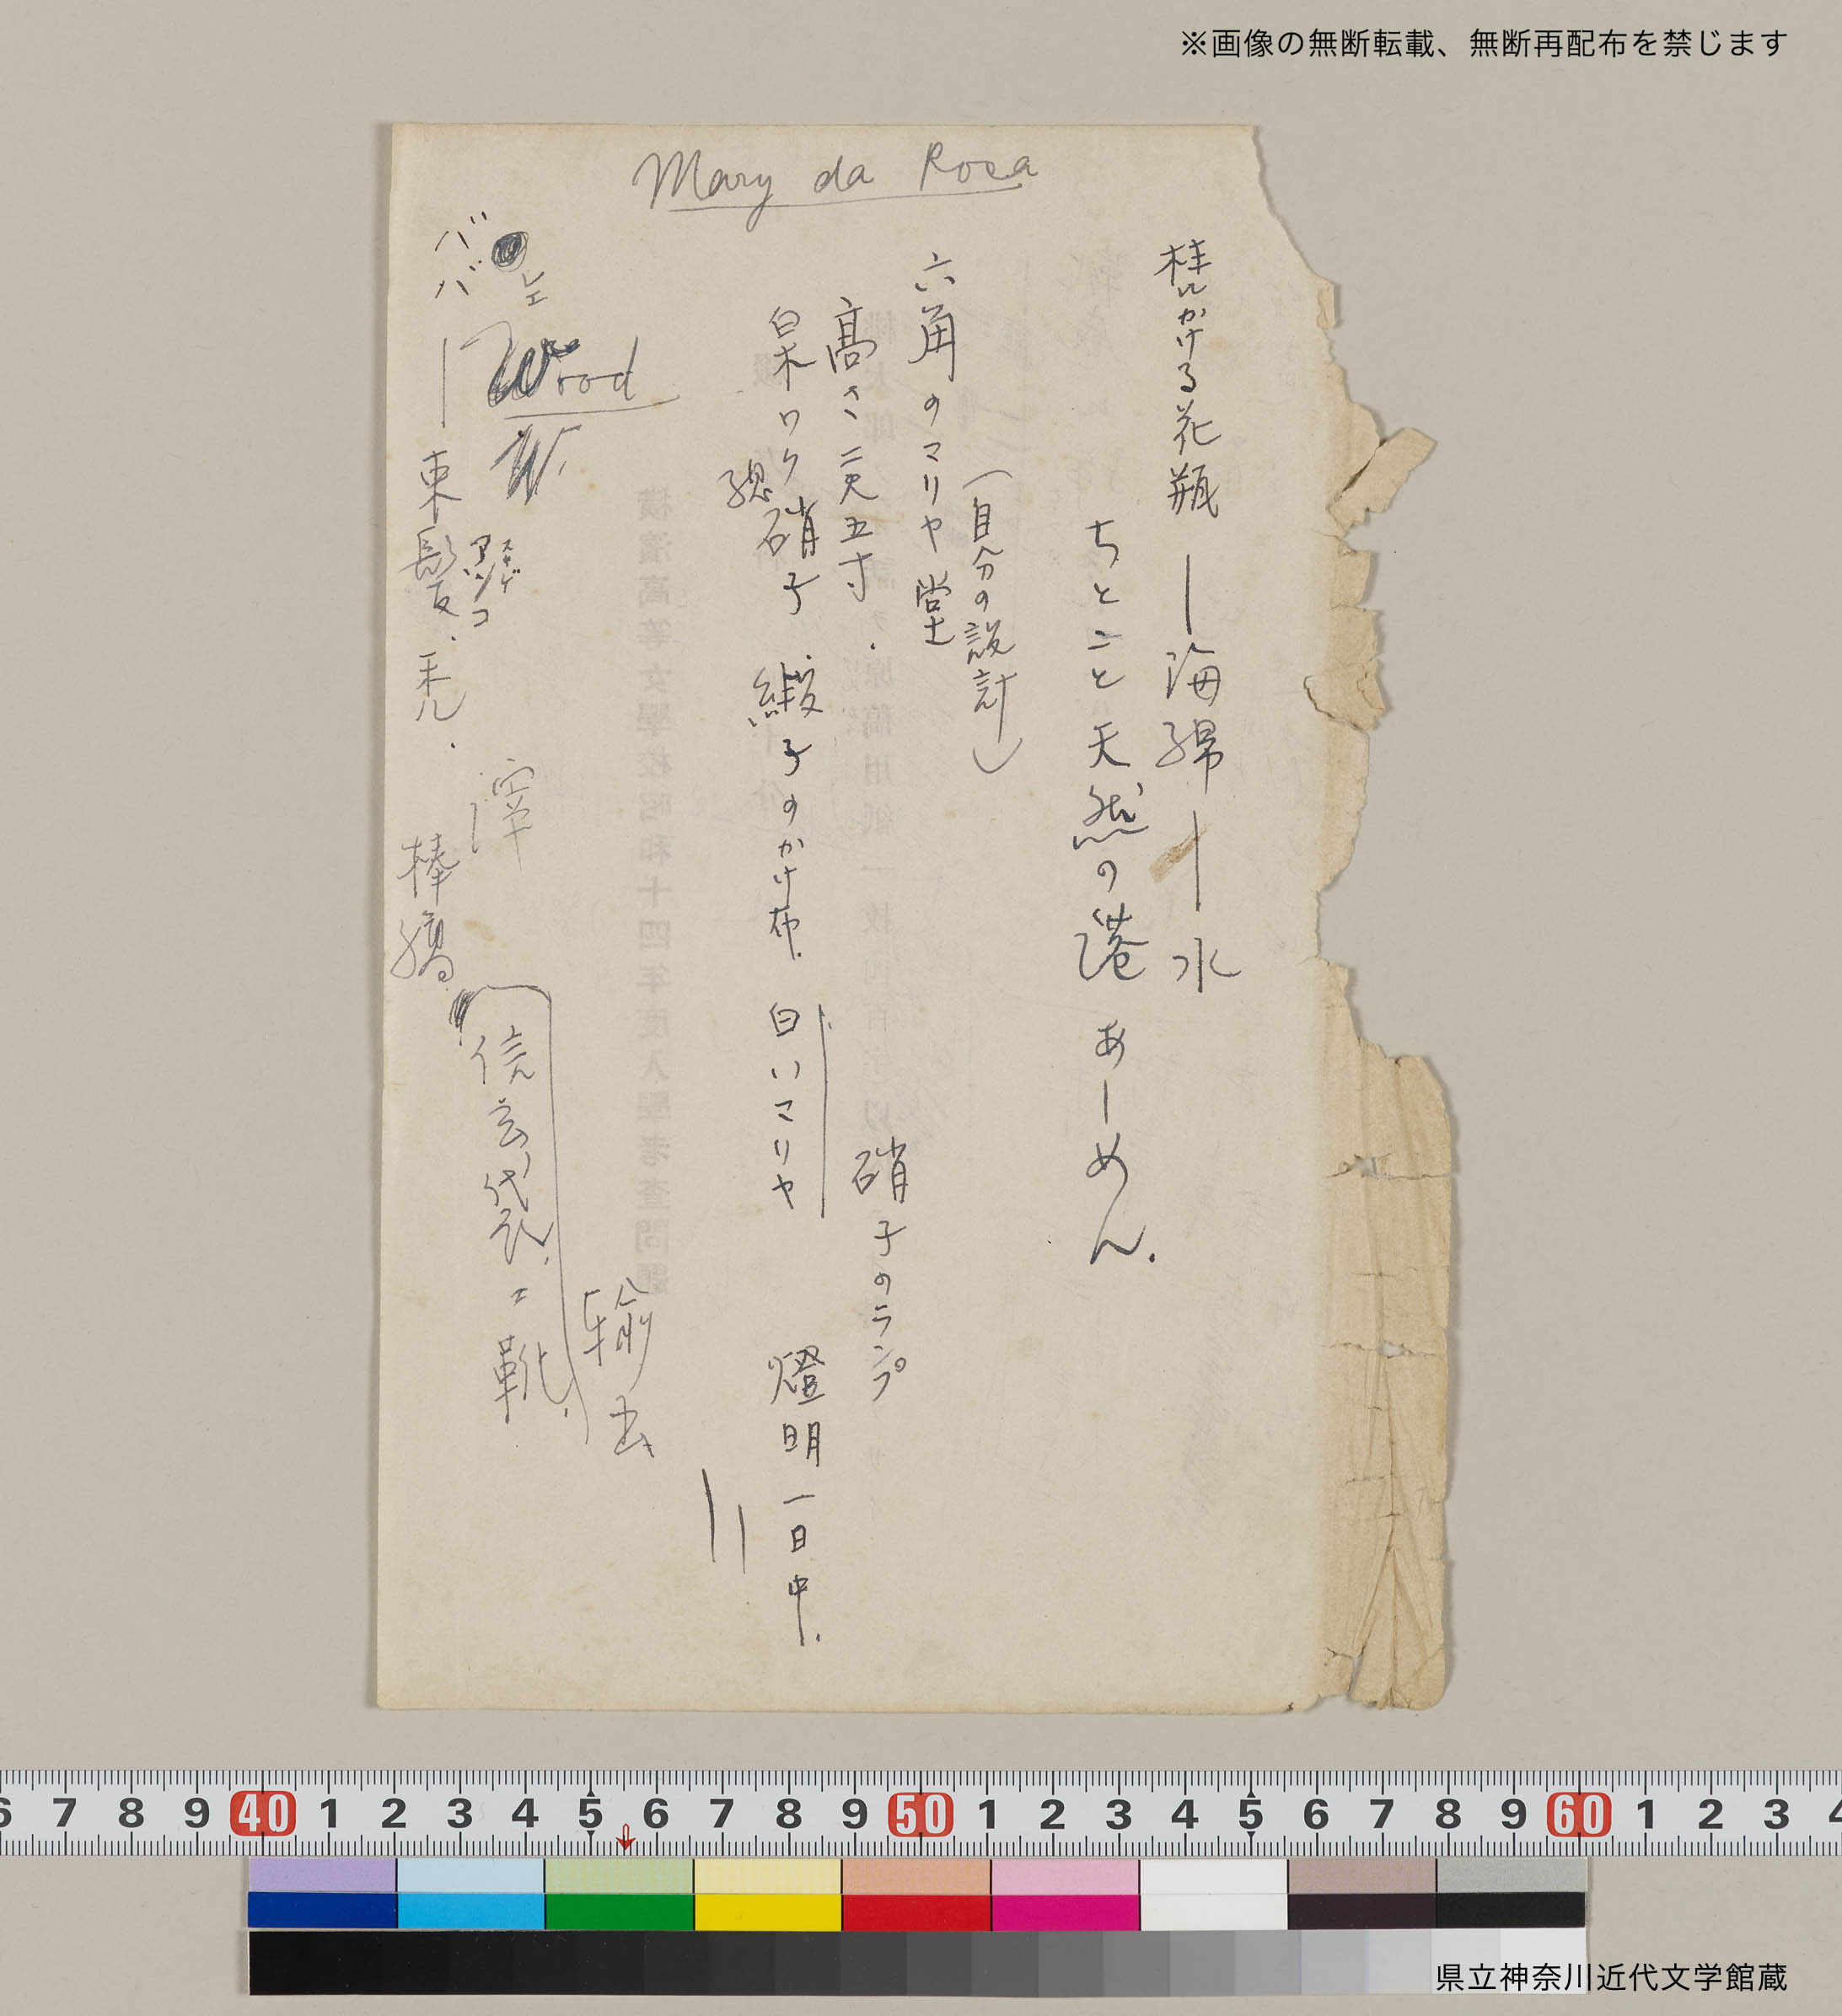 ※画像の無断転載、無断再配布を禁じます
Mary da Rosa
柱にかける花瓶―海綿―水
ちとこと天然の港 あーめん.
(自分の設計)
六角のマリヤ堂
高さ二尺五寸.
硝子のランプ
黒ワク硝子.緞子のかけ布.白いマリヤ 燈明一日中.
総
輸出
レエ
Wood
W.
スキゲ
アンコ
滓
信玄袋.エ靴.
ババ―束髪.禿.棒縞
6 7 8 9 40 1 2 3 4 5 6 7 8 9 50 1 2 3 4 5 6 7 8 9 60 1 2 3 4
県立神奈川近代文学館蔵